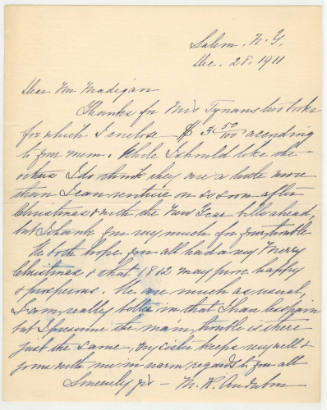 Salem. N. Y.
Dec. 28. 1911
Dear Mr Madigan
Thanks for Miss Tynans two books
for which I enclose $ 3.50 according
to your mem. While I should like the
others I do think they are a little more
than I can venture on so soon after
Christmas & with the New Year bills ahead,
but thank you very much for your trouble
We both hope you all had a very Merry
Christmas & that 1912 may prove happy
& prosperous. We are much as usual,
I am really better in that I have less pain
but I presume the main trouble is there
just the same. My sister keeps very well &
joins with me in warm regards to you all
Sincerely yrs — M. R. Audubon